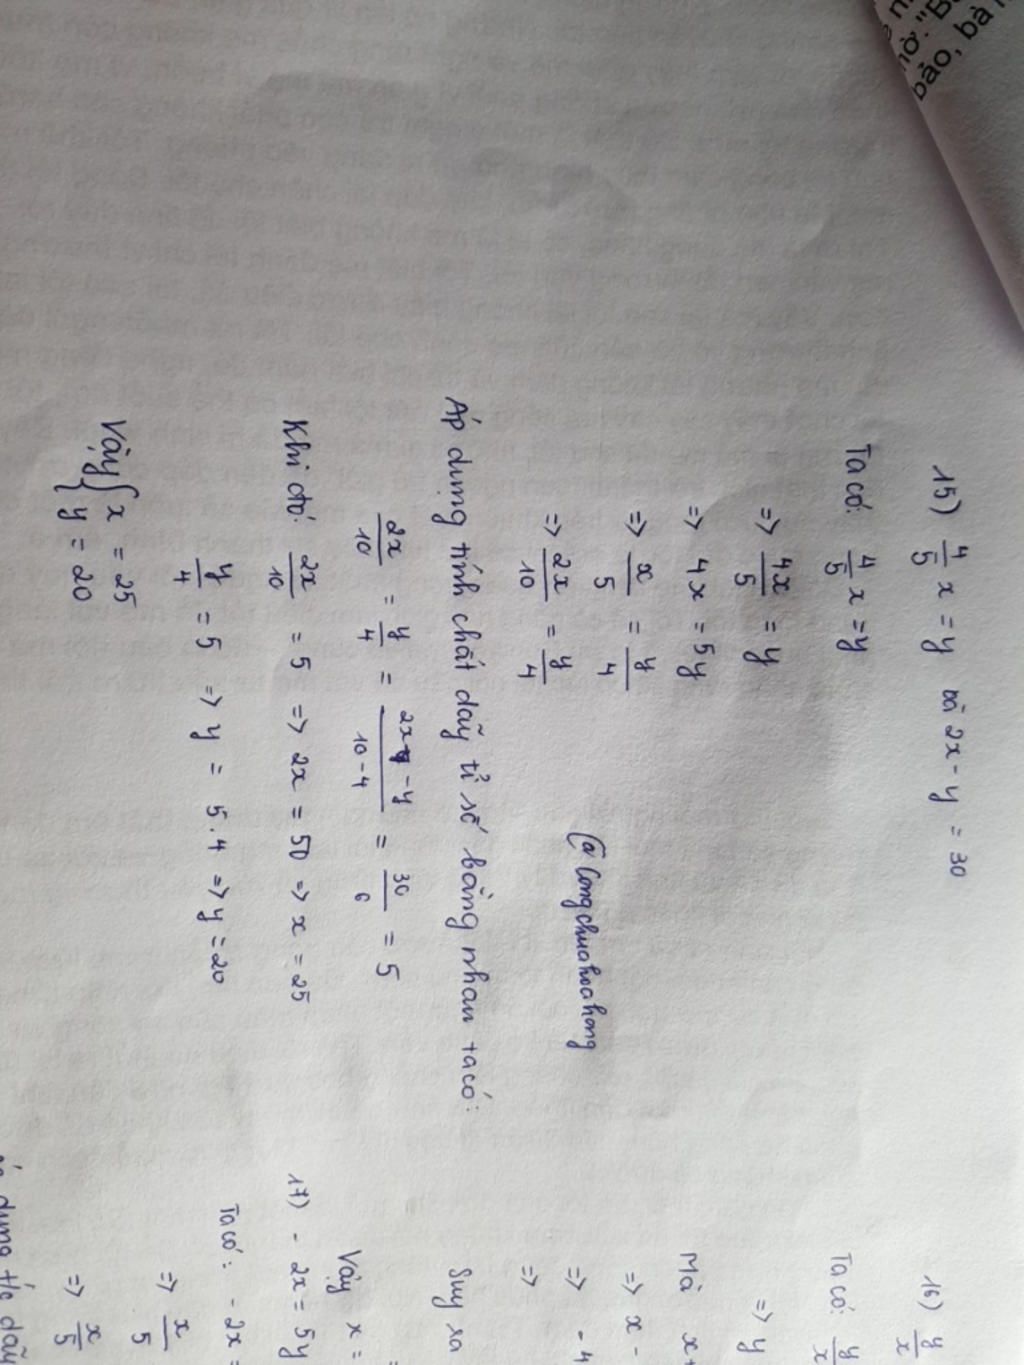 15) 4/5 x = y và 2x - y = 30
Ta có: 4/5 x = y
=> 4x/5 = y
=> 4x = 5y
=> x/5 = y/4
=> 2x/10 = y/4
@Congchuahoahong
Áp dụng tính chất dãy tỉ số bằng nhau ta có:
2x/10 = y/4 = 2x - y/10 - 4 = 30/6 = 5
Khi đó: 2x/10 = 5 => 2x = 50 => x = 25
y/4 = 5 => y = 5.4 => y = 20
Vậy { x = 25
y = 20
16) y/x
Ta có: y/x
=> y
Mà x+
=> x -
=> - 4
=>
Suy ra
Vậy x =
17) - 2x = 5y
Ta có: - 2x =
=> x/5
=> x/5
dụng t/c dãy
nờ. "B
bảo, bà